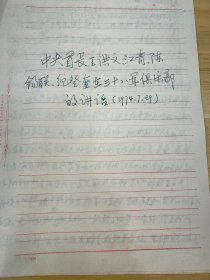 中央首长王洪文、江青、陈
锡联、纪登奎在三十八军俱乐部
的讲话（1974.1.29）